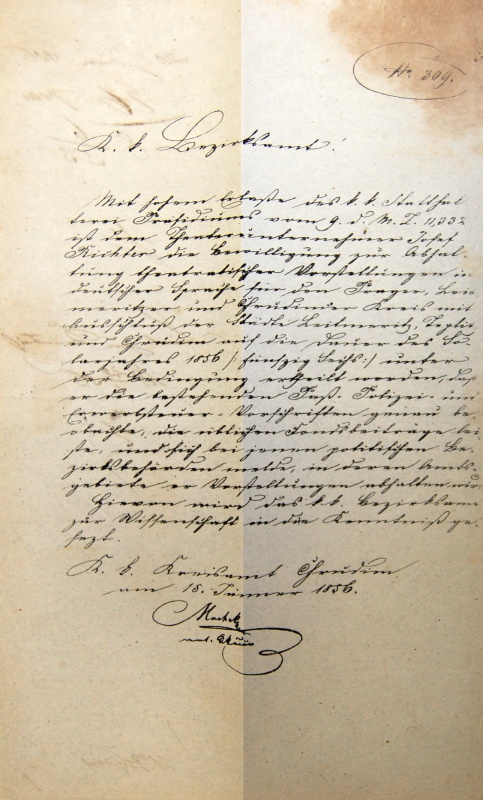 No 309.
K. k. Bezirksamt!
Mit hohem Erlaße des k. k. Statthal
terei Präsidiums vom 9. d. M. Z. 11,332
ist dem Theaterunternehmer Josef
Richter die Bewilligung zur Abhal-
tung theatralischer Vorstellungen in
deutscher Sprache für den Prager, Leit
meritzer und Chrudimer Kreis mit
Ausschluß der Städte Leitmeritz, Teplitz
und Chrudim auf die Dauer des So-
larjahres 1856 /: fünfzig Sechs :/ unter
der Bedingung ertheilt worden, daß
er die bestehenden Paß- Polizei- und
Erwerbsteuer-Vorschriften genau be-
obachte, die üblichen Fondsbeiträge lei
ste, und sich bei jenen politischen Be-
zirksbehörden melde, in deren Amts-
gebiete er Vorstellungen abhalten wird
Hievon wird das k. k. Bezirksamt
zur Wissenschaft in die Kenntniß ge-
setzt.
K. k. Kreisamt Chrudim
am 18. Jänner 1856.